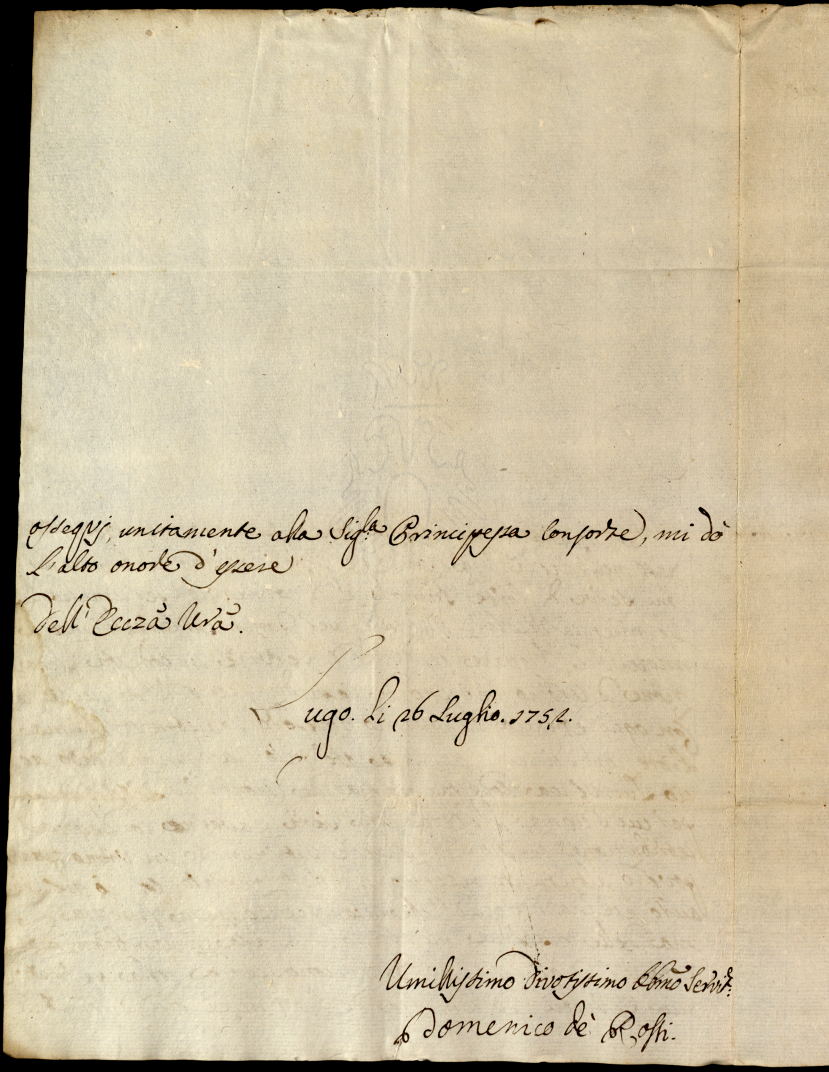 ossequj, unitamente alla Sig.ra Principessa Consorte, mi dò
l'alto onore d'essere
Dell' Eccza Vrã.
Lugo. li 26 Luglio. 1752.
Umilissimo Divotissimo Obmõ Servit:
Domenico dè Rossi.